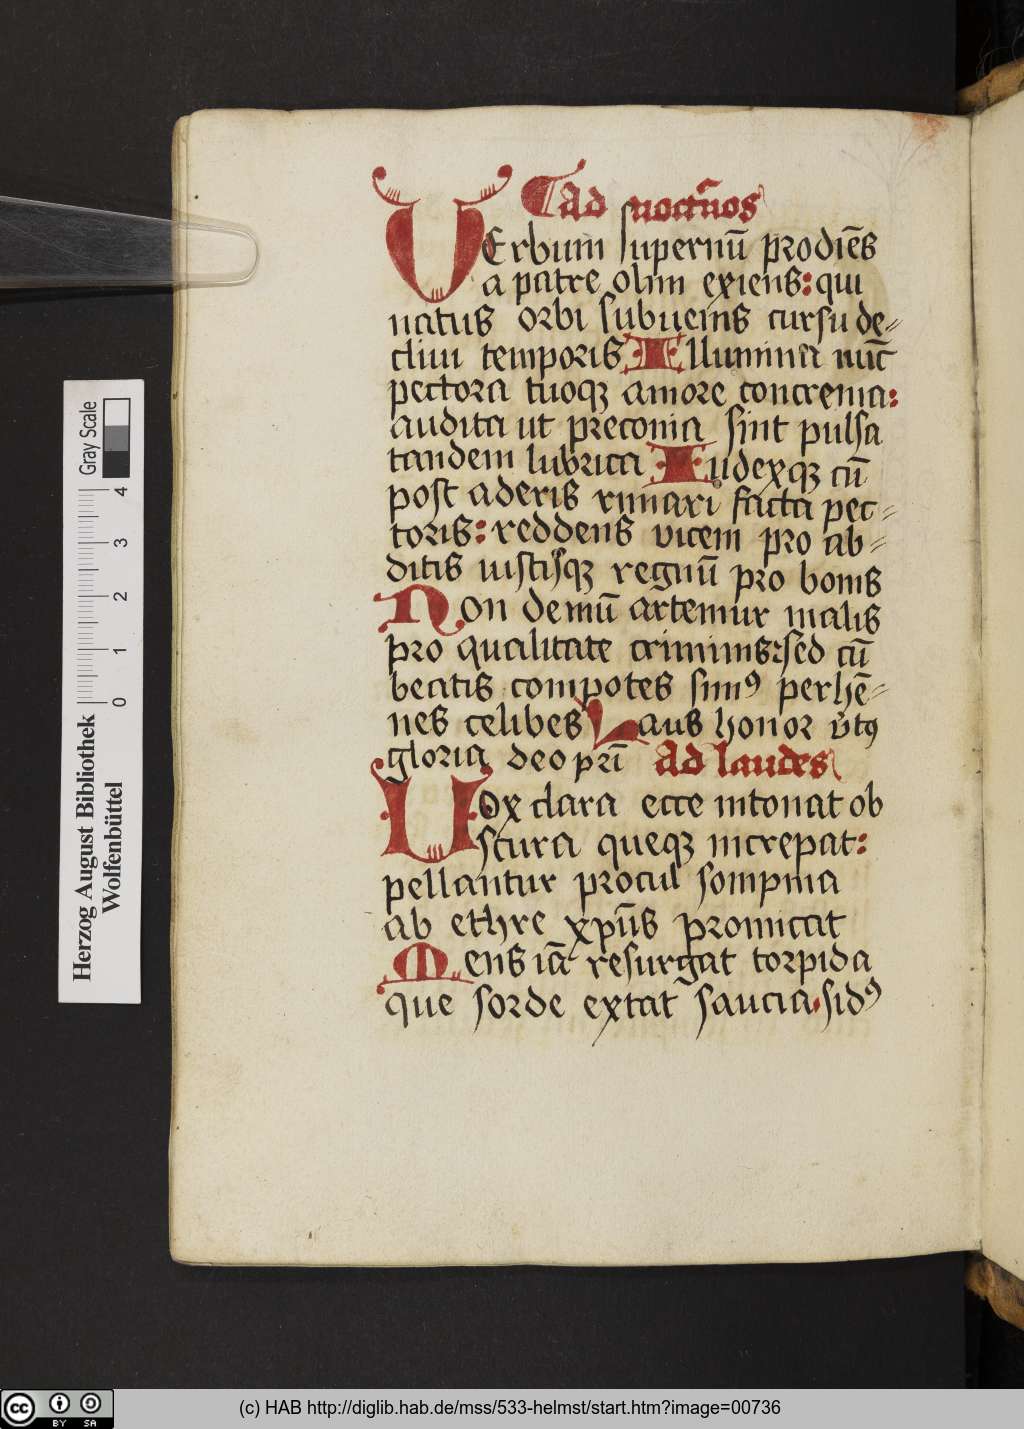 Ad noctũos
VErbum supernũ prodiẽs
a patre olim exiens: qui
natus orbi subuenis cursu de=
cliui temporis Illumina nũc
pectora tuoqꝫ amore concrema:
audita ut preconia sint pulsa
tandem lubrica Iudexqꝫ cũ
post aderis rimari facta pec=
toris: reddens vicem pro ab=
ditis iustisqꝫ regnũ pro bonis
Non demũ artemur malis
pro qualitate criminis: sed cũ
beatis compotes simꝰ perhẽ=
nes celibes Laus honor v̾tꝰ
gloria deo pr̃i Ad laudes
Uox clara ecce intonat ob
scura queqꝫ increpat:
pellantur procul sompnia
ab ethre xp̃us promicat
Mens iã resurgat torpida
que sorde extat saucia. sidꝰ
Herzog August Bibliothek
Wolfenbüttel
0 1 2 3 4
Gray Scale
cc BY SA
(c) HAB http://diglib.hab.de/mss/533-helmst/start.htm?image=00736